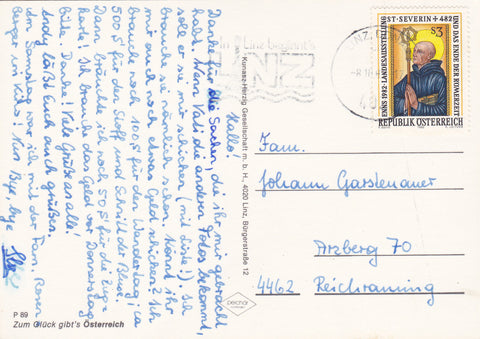 Hallo!
Danke für die Sachen, die ihr mir gebracht
habt. Wenn Kati die anderen Fotos bekommt,
soll er sie mir schicken (mit Liste!). Ich
brauche sie nämlich schon. Könnt ihr
mir auch noch etwas Geld schicken? Ich
brauch noch 100 S für den Wandertag, ca
500 S für den Stoff und Schnitt der Bluse.
Dann bräuchte ich noch 50 S für die
Karte. Ich brauche das Geld vor Donnerstag
bitte. Danke! Viele Grüße an alle!
Andy läßt Euch auch grüßen.
Am Samstag war ich mit der Fam. Rosen
berger im Kino! Nun Bye, bye
P 89
Zum Glück gibt's Österreich
Kunasz-Herzig Gesellschaft m. b. H., 4020 Linz, Bürgerstraße 12
Linz beginnt's
NZ
ST·SEVERIN+482
UND DAS ENDE DER RÖMERZEIT
ENNS 1982·LANDESAUSSTELLUNG
S3
REPUBLIK ÖSTERREICH
Fam.
Johann Garstenauer
Arzberg 70
4462 Reichraming